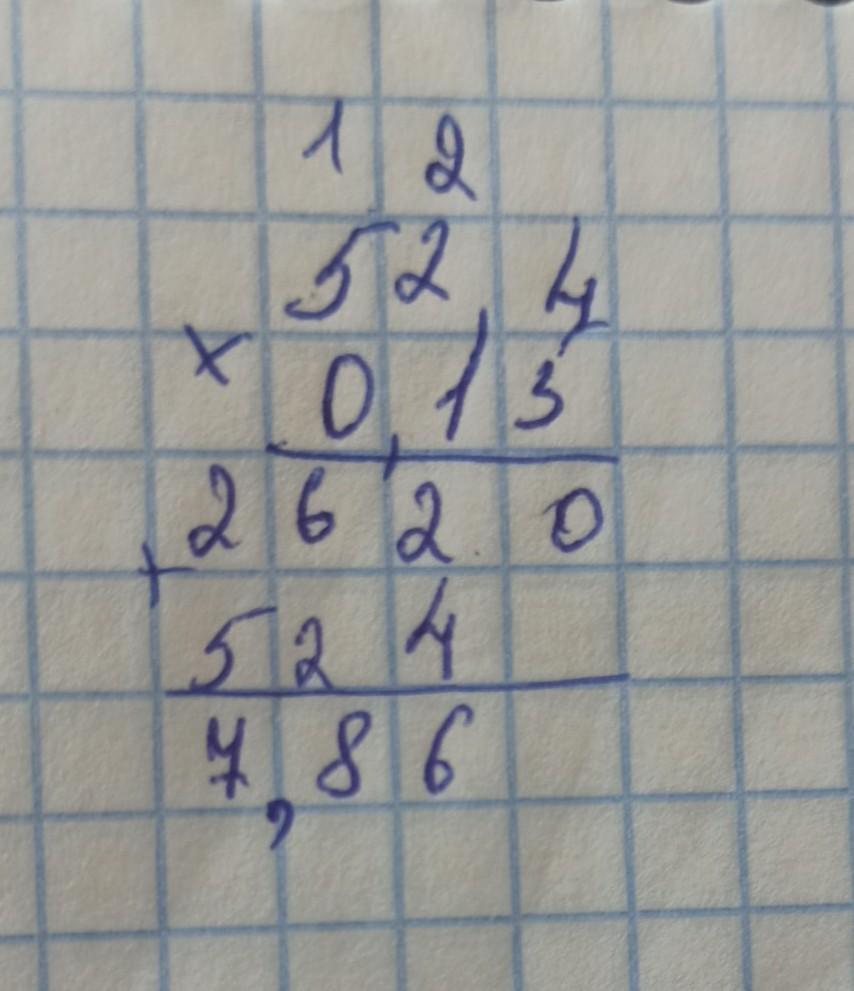 1 2
52,4
× 0,15
2620
+
524
7,86